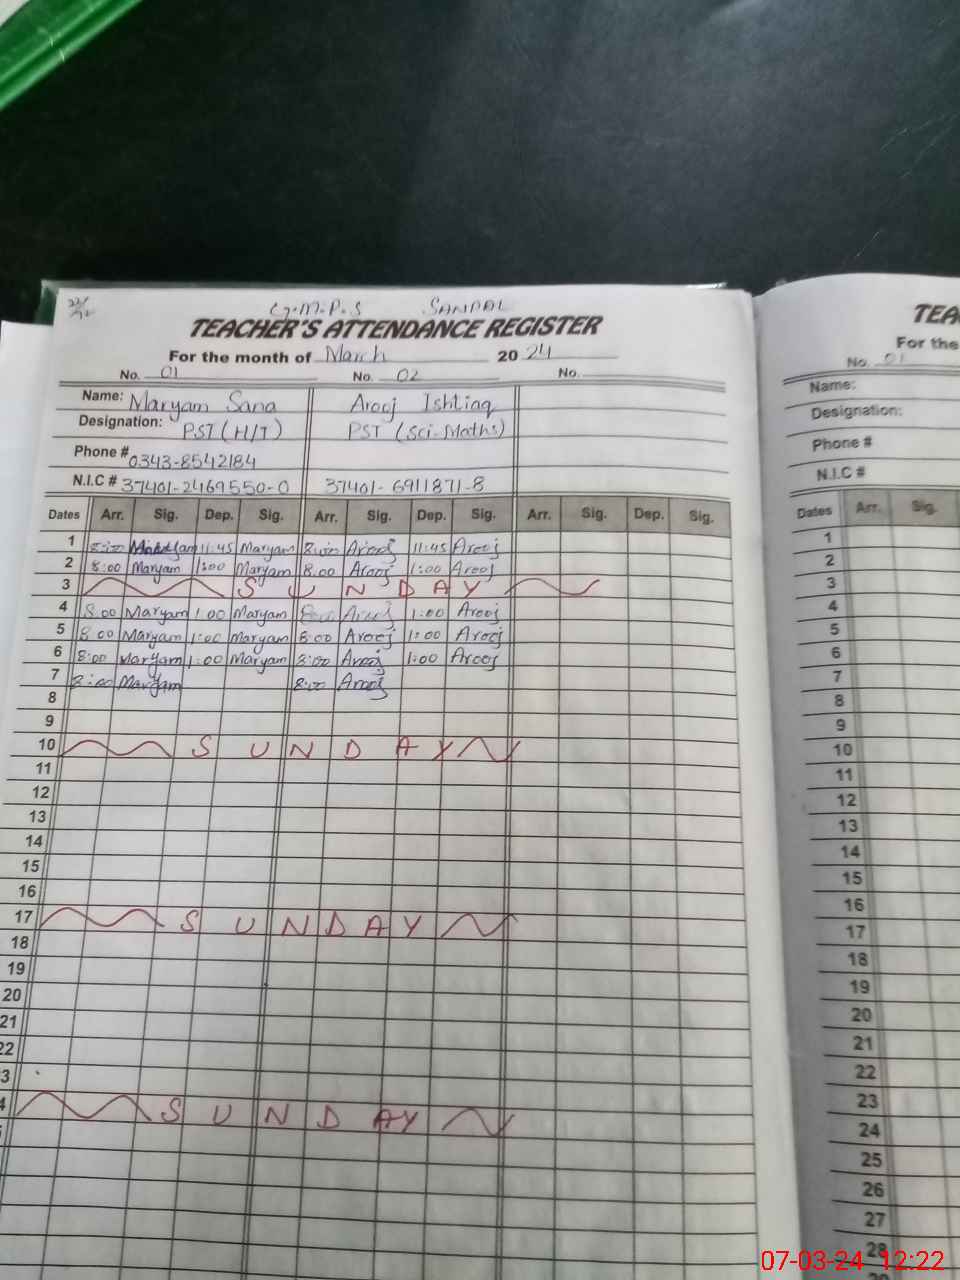 G.M.P.S SANDAL
TEACHER'S ATTENDANCE REGISTER
For the month of March 2024
No. 01 No. 02 No.
Name: Maryam Sana Arooj Ishtiaq
Designation: PST (H/T) PST (Sci-Maths)
Phone # 0343-8542184
N.I.C # 37401-2469550-0 37401-6911871-8
Dates Arr. Sig. Dep. Sig. Arr. Sig. Dep. Sig. Arr. Sig. Dep. Sig.
1 8:00 Maryam 11:45 Maryam 8:00 Arooj 11:45 Arooj
2 8:00 Maryam 1:00 Maryam 8:00 Arooj 1:00 Arooj
3 SUNDAY
4 8:00 Maryam 1:00 Maryam 8:00 Arooj 1:00 Arooj
5 8:00 Maryam 1:00 Maryam 8:00 Arooj 1:00 Arooj
6 8:00 Maryam 1:00 Maryam 8:00 Arooj 1:00 Arooj
7 8:00 Maryam 8:00 Arooj
8
9
10 SUNDAY
11
12
13
14
15
16
17 SUNDAY
18
19
20
21
22
3
4 SUNDAY
TEA
For the
No. 01
Name:
Designation:
Phone #
N.I.C #
Dates Arr. Sig.
1
2
3
4
5
6
7
8
9
10
11
12
13
14
15
16
17
18
19
20
21
22
23
24
25
26
27
28
07-03-24 12:22